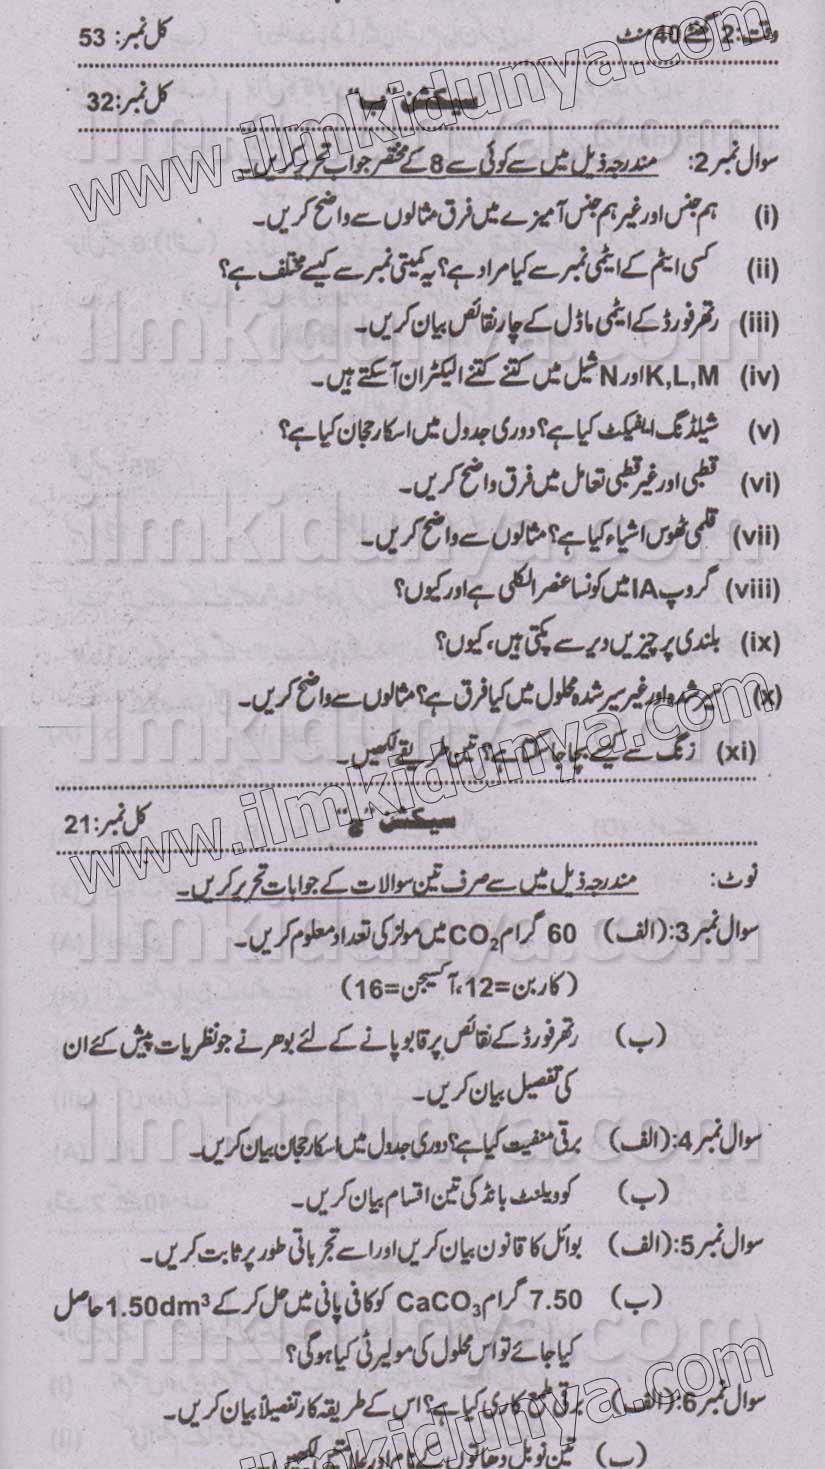 وقت: 2 گھنٹے 40 منٹ کل نمبر: 53
سیکشن "ب" کل نمبر: 32
سوال نمبر 2: مندرجہ ذیل میں سے کوئی سے 8 کے مختصر جواب تحریر کریں۔
(i) ہم جنس اور غیر ہم جنس آمیزے میں فرق مثالوں سے واضح کریں۔
(ii) کسی ایٹم کے ایٹمی نمبر سے کیا مراد ہے؟ یہ کمیتی نمبر سے کیسے مختلف ہے؟
(iii) رتھر فورڈ کے ایٹمی ماڈل کے چار نقائص بیان کریں۔
(iv) K,L,M اور N شیل میں کتنے کتنے الیکٹران آ سکتے ہیں۔
(v) شیلڈنگ ایفیکٹ کیا ہے؟ دوری جدول میں اسکا رجحان کیا ہے؟
(vi) قطبی اور غیر قطبی تعامل میں فرق واضح کریں۔
(vii) قلمی ٹھوس اشیاء کیا ہے؟ مثالوں سے واضح کریں۔
(viii) گروپ IA میں کونسا عنصر الکلی ہے اور کیوں؟
(ix) بلندی پر چیزیں دیر سے پکتی ہیں، کیوں؟
(x) سیر شدہ اور غیر سیر شدہ محلول میں کیا فرق ہے؟ مثالوں سے واضح کریں۔
(xi) زنگ سے کیسے بچا جا سکتا ہے؟ تین طریقے لکھیں۔
سیکشن "ج" کل نمبر: 21
نوٹ: مندرجہ ذیل میں سے صرف تین سوالات کے جوابات تحریر کریں۔
سوال نمبر 3: (الف) 60 گرام CO₂ میں مولز کی تعداد معلوم کریں۔
(کاربن=12، آکسیجن=16)
(ب) رتھر فورڈ کے نقائص پر قابو پانے کے لئے بوھر نے جو نظریات پیش کئے ان
کی تفصیل بیان کریں۔
سوال نمبر 4: (الف) برقی منفیت کیا ہے؟ دوری جدول میں اسکا رجحان بیان کریں۔
(ب) کوویلنٹ بانڈ کی تین اقسام بیان کریں۔
سوال نمبر 5: (الف) بوائل کا قانون بیان کریں اور اسے تجرباتی طور پر ثابت کریں۔
(ب) 7.50 گرام CaCO₃ کو کافی پانی میں حل کر کے 1.50dm³ حاصل
کیا جائے تو اس محلول کی مولیرٹی کیا ہوگی؟
سوال نمبر 6: (الف) برقی ملمع کاری کیا ہے؟ اس کے طریقہ کار تفصیلاً بیان کریں۔
(ب) تین نوبل دھاتوں کے نام
www.ilmkidunya.com
ilmkidunya.com
ilmkidunya.com
ilmkidunya.com
ilmkidunya.com
www.ilmkidunya.com
ilmkidunya.com
ilmkidunya.com
ilmkidunya.com
ilmkidunya.com